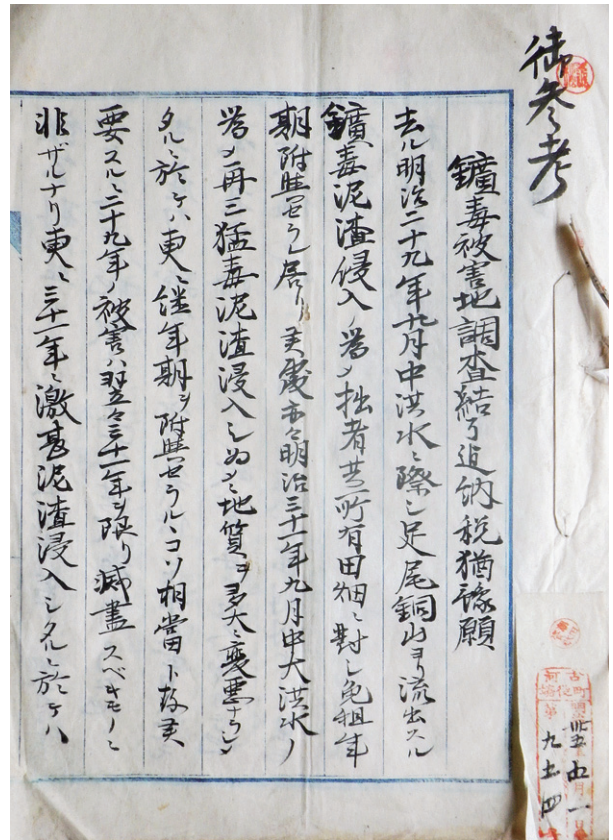 御参考
鑛毒被害地調査結了迄納税猶豫願
去ル明治二十九年九月中洪水ニ際シ足尾銅山ヨリ流出スル
鑛毒泥渣侵入ノ為メ拙者共所有田畑ニ對シ免租年
期附與セラレ居リ其處亦々明治三十一年九月中大洪水ノ
為メ再三猛毒泥渣浸入シ為メニ地質ヲ多大ニ変悪ナラシメ
タルニ於テハ更ニ継年期ヲ附與セラルヽコソ相當ト
要スルニ二十九年ノ被害ハ翌々三十一年ヲ限リ滅盡スベキモノニ
非ザルナリ更ニ三十一年ニ激甚泥渣浸入シタルニ於テハ
古河町役場
第九五四